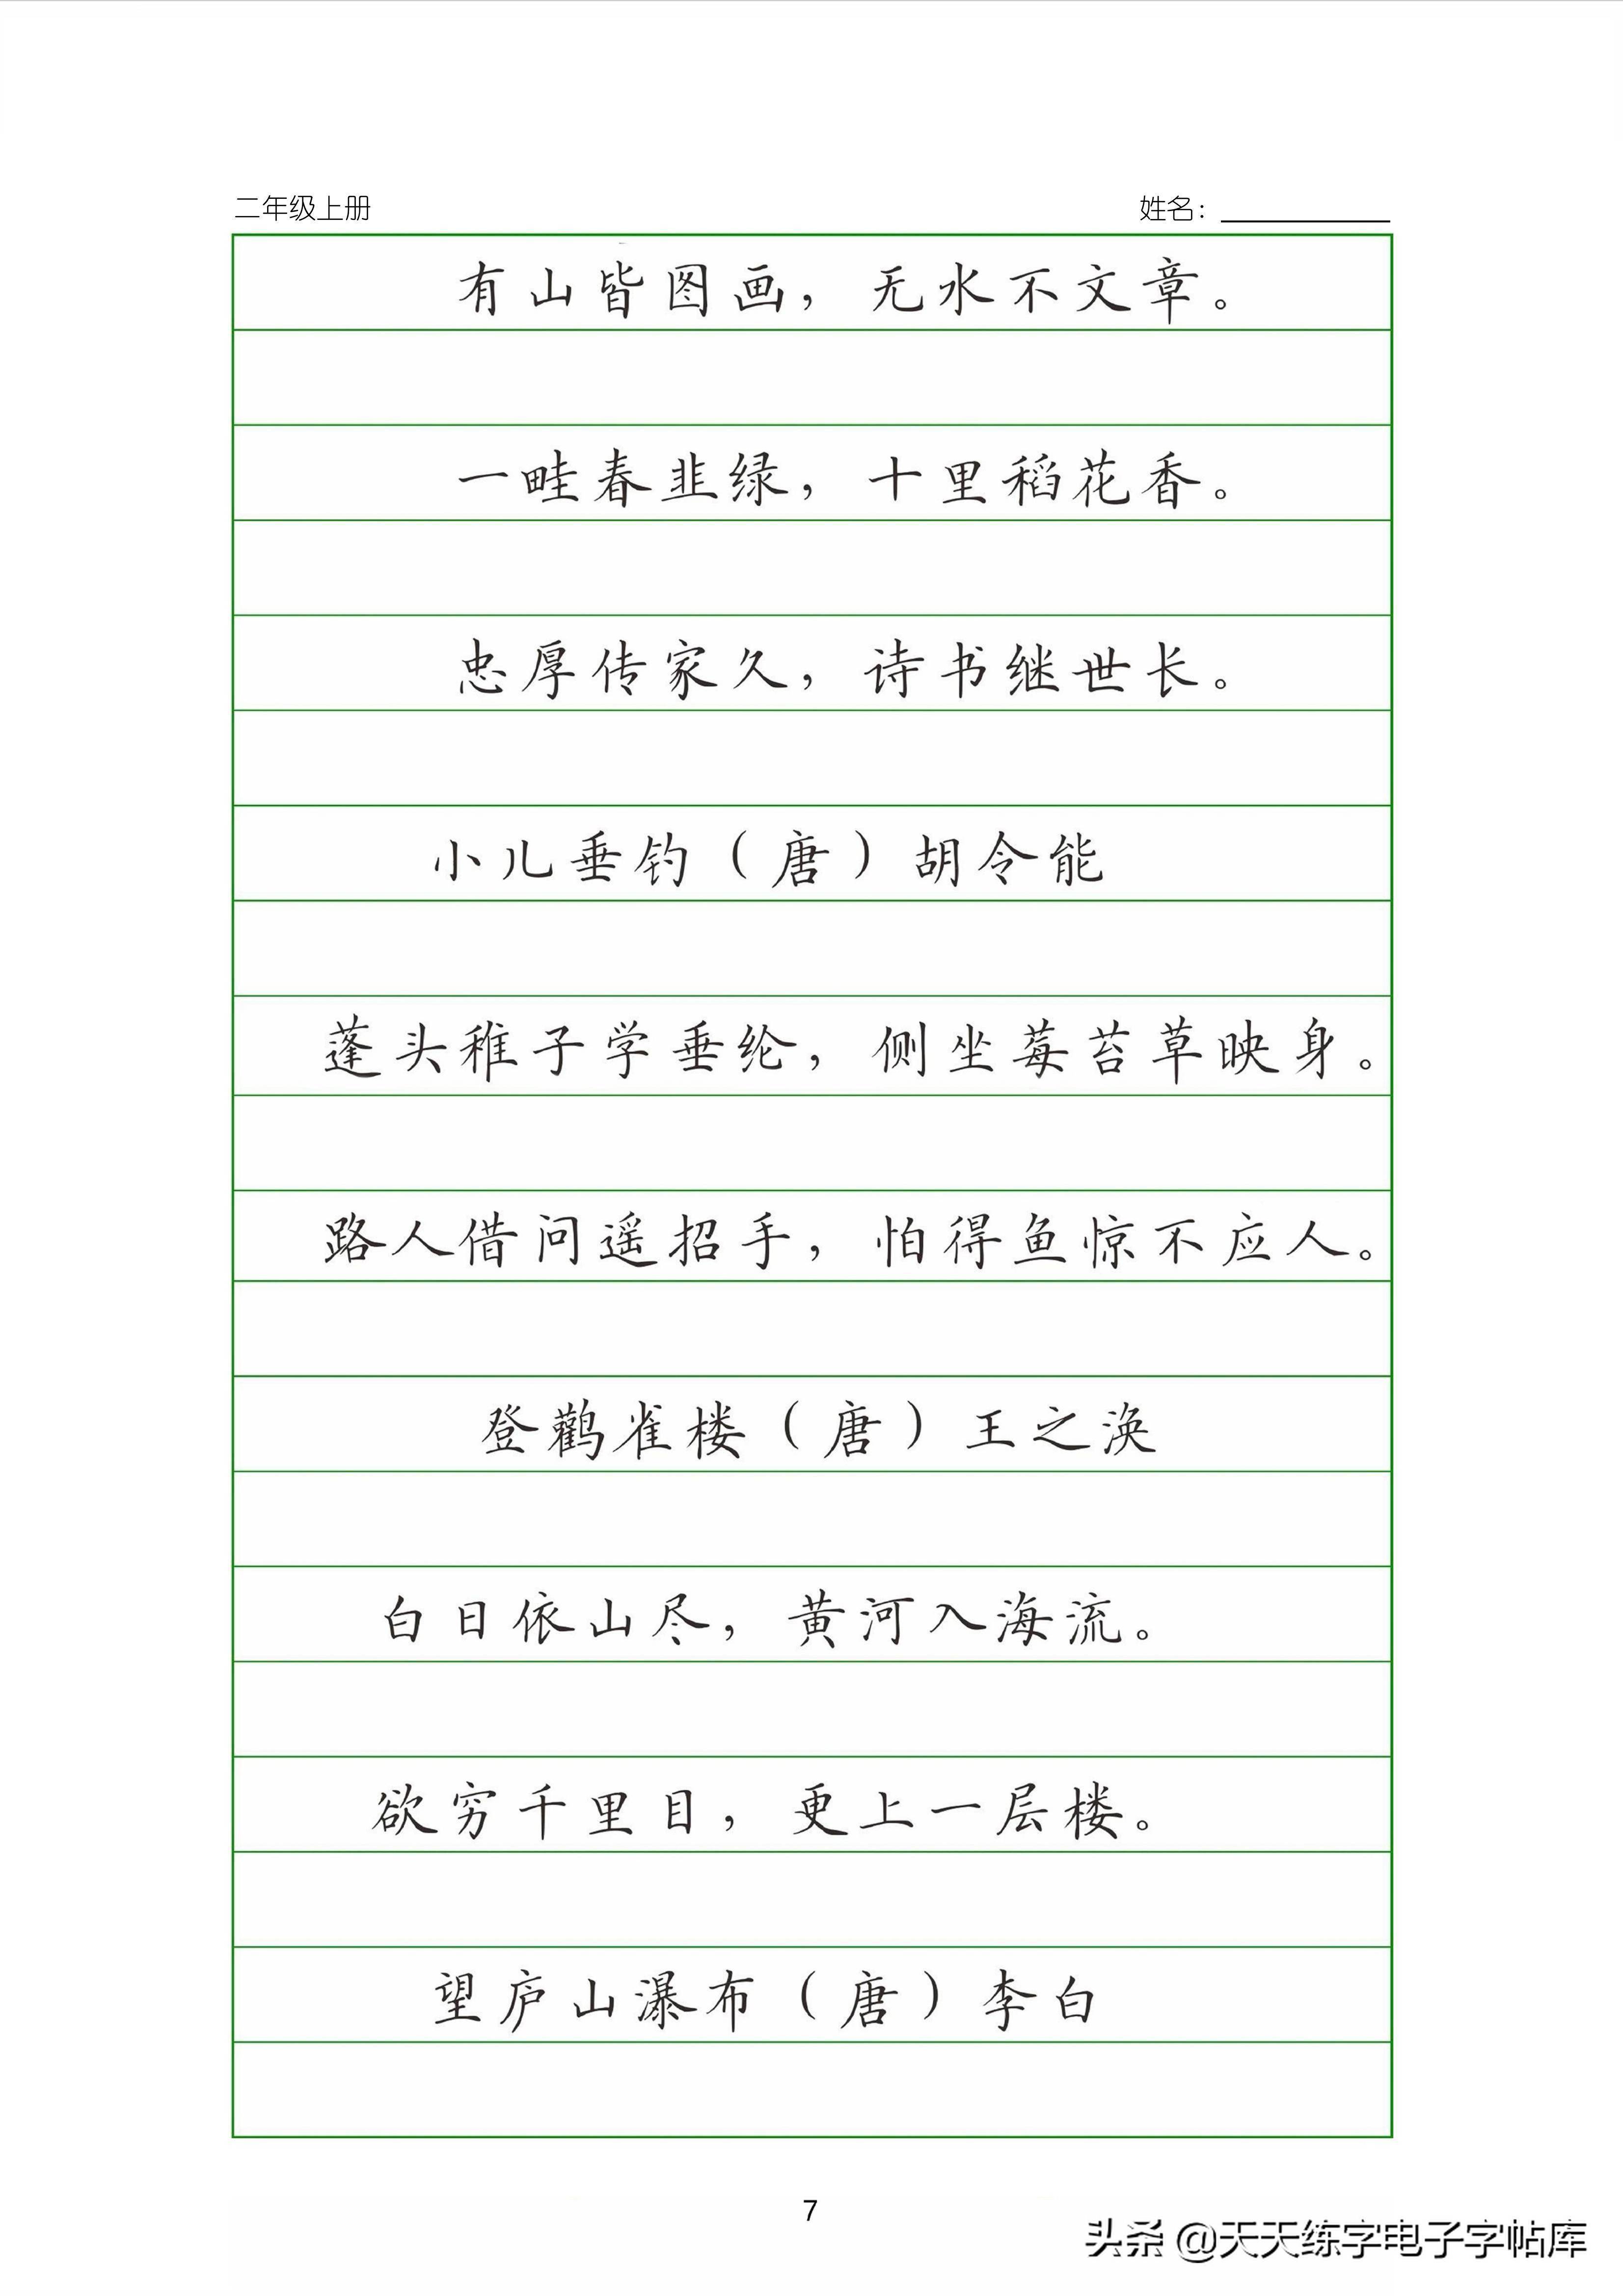 二年级上册 姓名：
有山皆图画，无水不文章。
一畦春韭绿，十里稻花香。
忠厚传家久，诗书继世长。
小儿垂钓（唐）胡令能
蓬头稚子学垂纶，侧坐莓苔草映身。
路人借问遥招手，怕得鱼惊不应人。
登鹳雀楼（唐）王之涣
白日依山尽，黄河入海流。
欲穷千里目，更上一层楼。
望庐山瀑布（唐）李白
7
头条 @天天练字电子字帖库